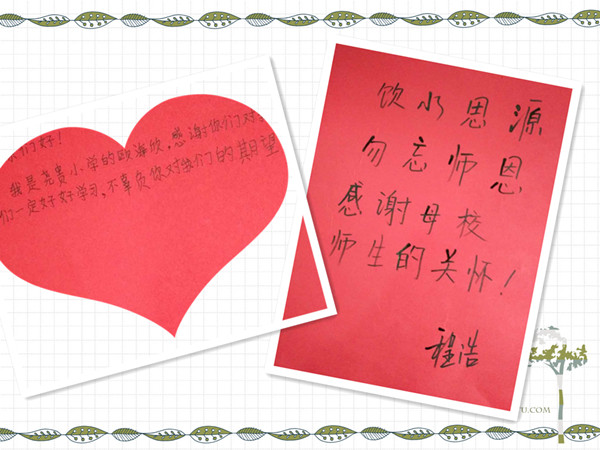 们好!
我是尧贵小学的欧海欣,感谢你们对
们一定好好学习,不辜负你对我们的期望
饮水思源
勿忘师恩
感谢母校
师生的关怀!
程浩
U.COM